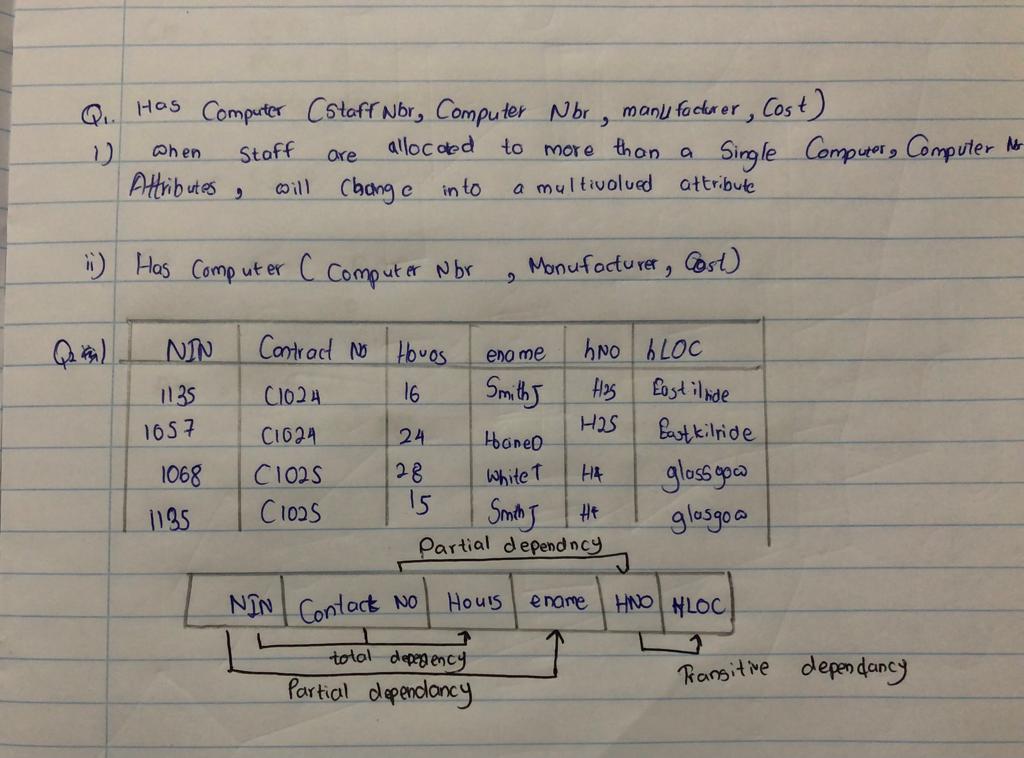 Q1. Has Computer (Staff Nbr, Computer Nbr, manufacturer, Cost)
1) when Staff are allocated to more than a Single Computer, Computer Nr
Attributes, will Change into a multivolued attribute
ii) Has Computer ( Computer Nbr , Manufacturer, Cost)
Q2 NIN Contract No Houos ename hNO hLOC
1135 C1024 16 Smith J H25 East ilride
1057 C1024 24 Hoane D H25 Eastkilride
1068 C1025 28 White T H4 glassgow
1135 C1025 15 Smth J H4 glasgow
Partial dependncy
NIN Contact NO Hours ename HNO HLOC
total depegency
Transitive dependancy
Partial dependancy